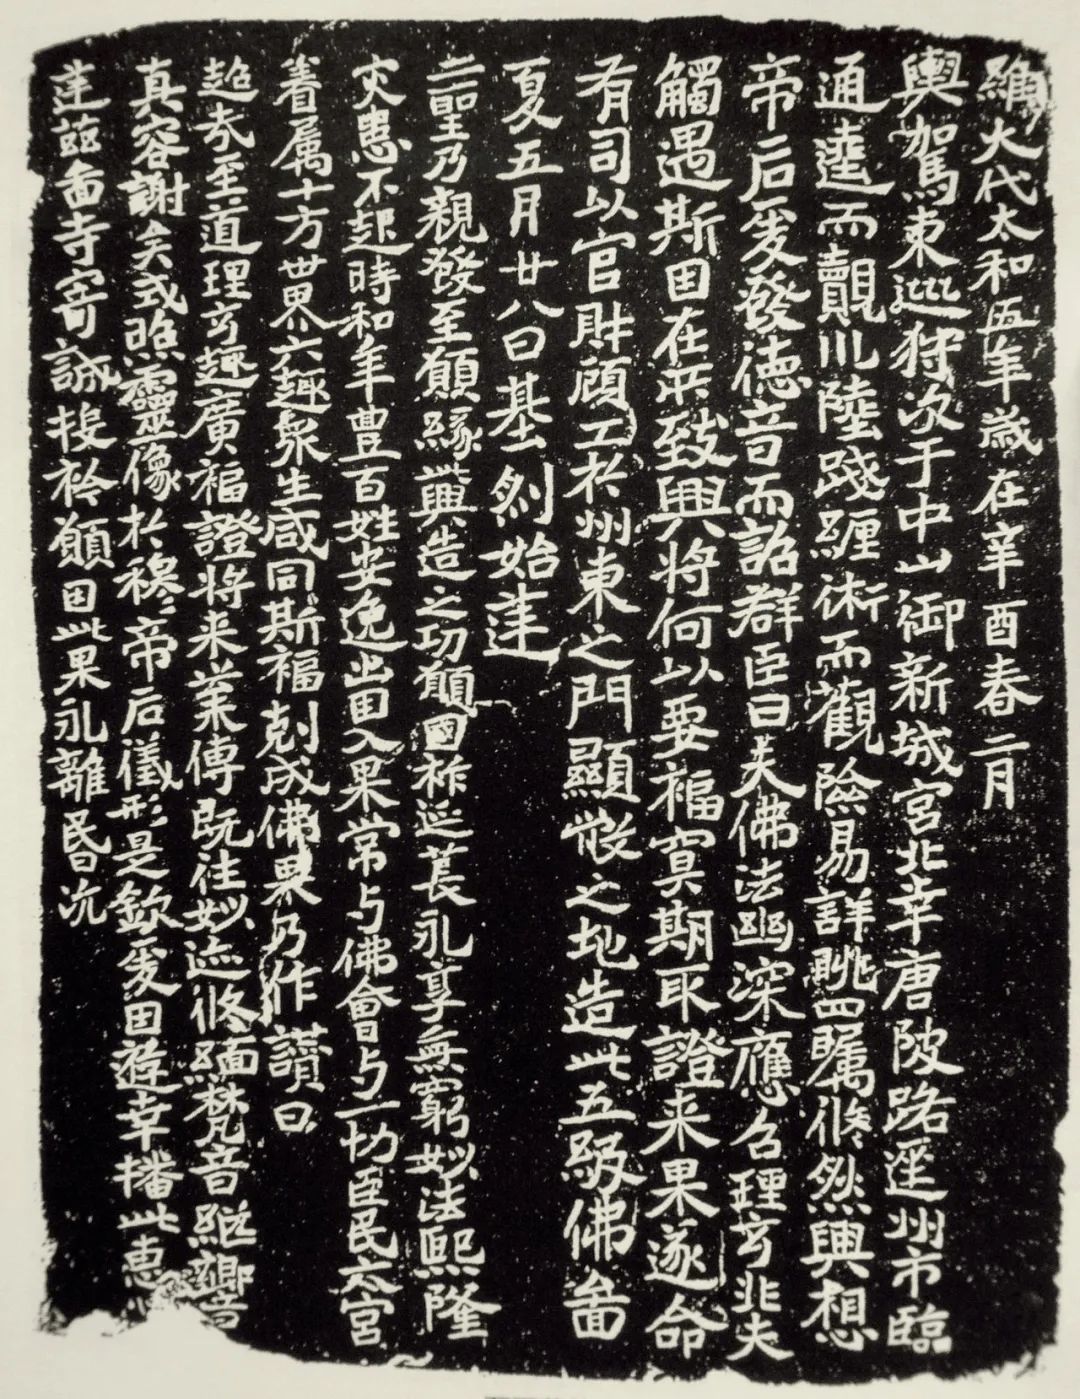 維大代太和五年歲在辛酉春二月
輿駕東巡狩次于中山御新城宮北幸唐陂路逕州市臨
通逵而覿川陸踐纏術而觀險易詳眺四矚倏然興想
帝后爰發德音而詔群臣曰夫佛法幽深應召理玄非夫
觸遇斯因在所致興將何以要福冥期取證来果遂命
有司以官財顧工於州東之門顯敞之地造此五級佛啚
夏五月廿八日基刱始建
二聖乃親發至願緣此興造之功願國祚延萇永享無窮妙法熙隆
灾患不起時和年豊百姓安逸出因入果常与佛會与一切臣民六宮
眷属十方世界六趣衆生咸同斯福剋成佛果乃作讃曰
超哉至道理玄趣廣福證將来業傳既往妙迹攸緬梵音継響
真容謝矣式照靈像於穆二帝后儀形是欽爰因遊幸播此惠
建茲啚寺寄諭投衿願因此果永離昏沉